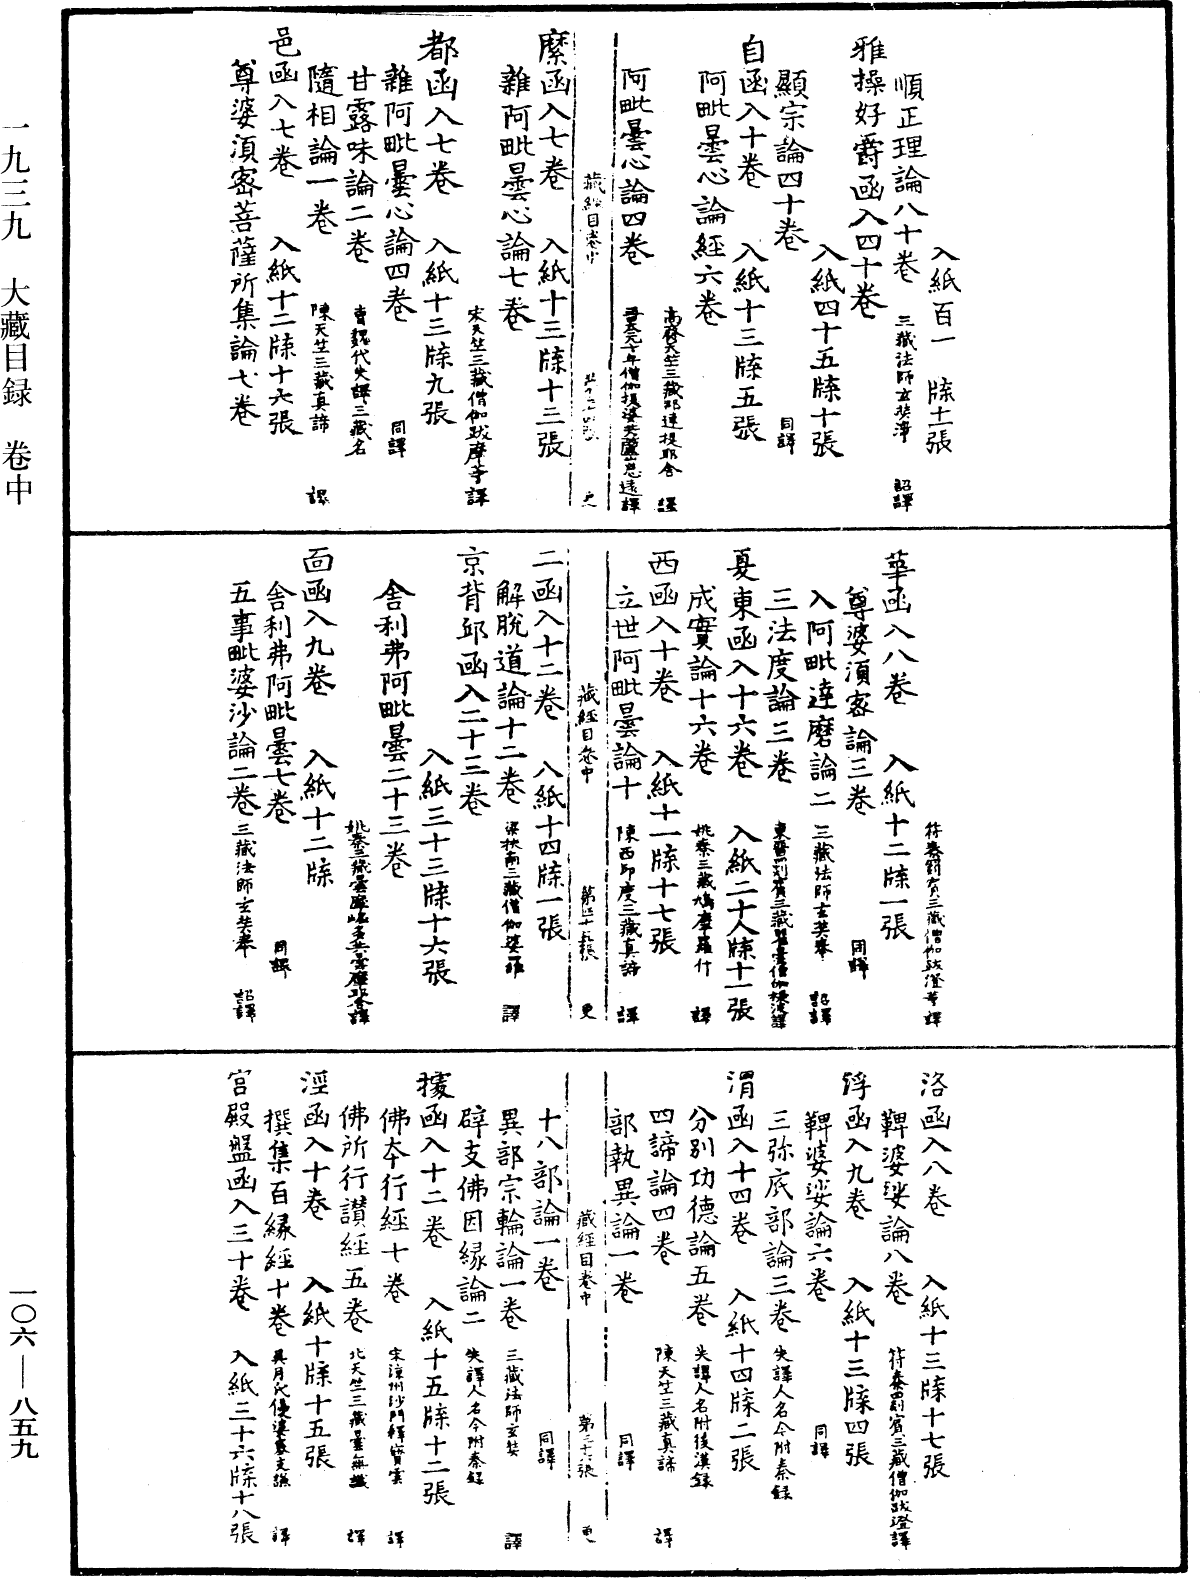 一九三九　大藏目録　卷中
一〇六—八五九
入紙百一　牍十一張
順正理論八十卷　三藏法師玄奘淨　詔譯
雅操好爵函入四十卷
入紙四十五牍十張
顯宗論四十卷　同譯
自函入十卷　入紙十三牍五張
阿毗曇心論經六卷　高齊天竺三藏那連提耶舍　譯
阿毗曇心論四卷
藏經目卷中
縻函入七卷　入紙十三牍十三張
雜阿毗曇心論七卷　宋天竺三藏僧伽跋摩等譯
都函入七卷　入紙十三牍九張
雜阿毗曇心論四卷　同譯
甘露味論二卷　曹魏代失譯三藏名
隨相論一卷　陳天竺三藏真諦　譯
邑函入七卷　入紙十二牍十六張
尊婆湏密菩薩所集論七卷
符秦罽賓三藏僧伽跋澄等譯
華函入八卷　入紙十二牍一張
尊婆湏密論三卷　同譯
入阿毗達磨論二　三藏法師玄奘奉　詔譯
三法度論三卷　東晉罽賓三藏瞿曇僧伽提婆譯
夏東函入十六卷　入紙二十八牍十一張
成實論十六卷　姚秦三藏鳩摩羅什　譯
西函入十卷　入紙十一牍十七張
立世阿毗曇論十　陳西印度三藏真諦　譯
藏經目卷中　第三十五張　更
二函入十二卷　入紙十四牍一張
解脫道論十二卷　梁扶南三藏僧伽婆羅　譯
京背邱函入二十三卷
入紙三十三牍十六張
舍利弗阿毗曇二十三卷
姚秦三藏曇摩崛多共曇摩耶舍譯
面函入九卷　入紙十二牍
舍利弗阿毗曇七卷　同譯
五事毗婆沙論二卷　三藏法師玄奘奉　詔譯
洛函入八卷　入紙十三牍十七張
鞞婆娑論八卷　符秦罽賓三藏僧伽跋澄譯
浮函入九卷　入紙十三牍四張
鞞婆娑論六卷　同譯
三弥底部論三卷　失譯人名今附秦録
渭函入十四卷　入紙十四牍二張
分别功德論五卷　失譯人名附後漢録
四諦論四卷　陳天竺三藏真諦　譯
部執異論一卷　同譯
藏經目卷中　第三十六張　更
十八部論一卷　同譯
異部宗輪論一卷　三藏法師玄奘　譯
辟支佛因緣論二　失譯人名今附秦録
據函入十二卷　入紙十五牍十二張
佛夲行經七卷　宋涼州沙門釋寶雲　譯
佛所行讃經五卷　北天竺三藏曇無讖　譯
涇函入十卷　入紙十牍十五張
撰集百緣經十卷　吳月氏優婆塞支謙　譯
宮殿盤函入三十卷　入紙三十六牍十八張